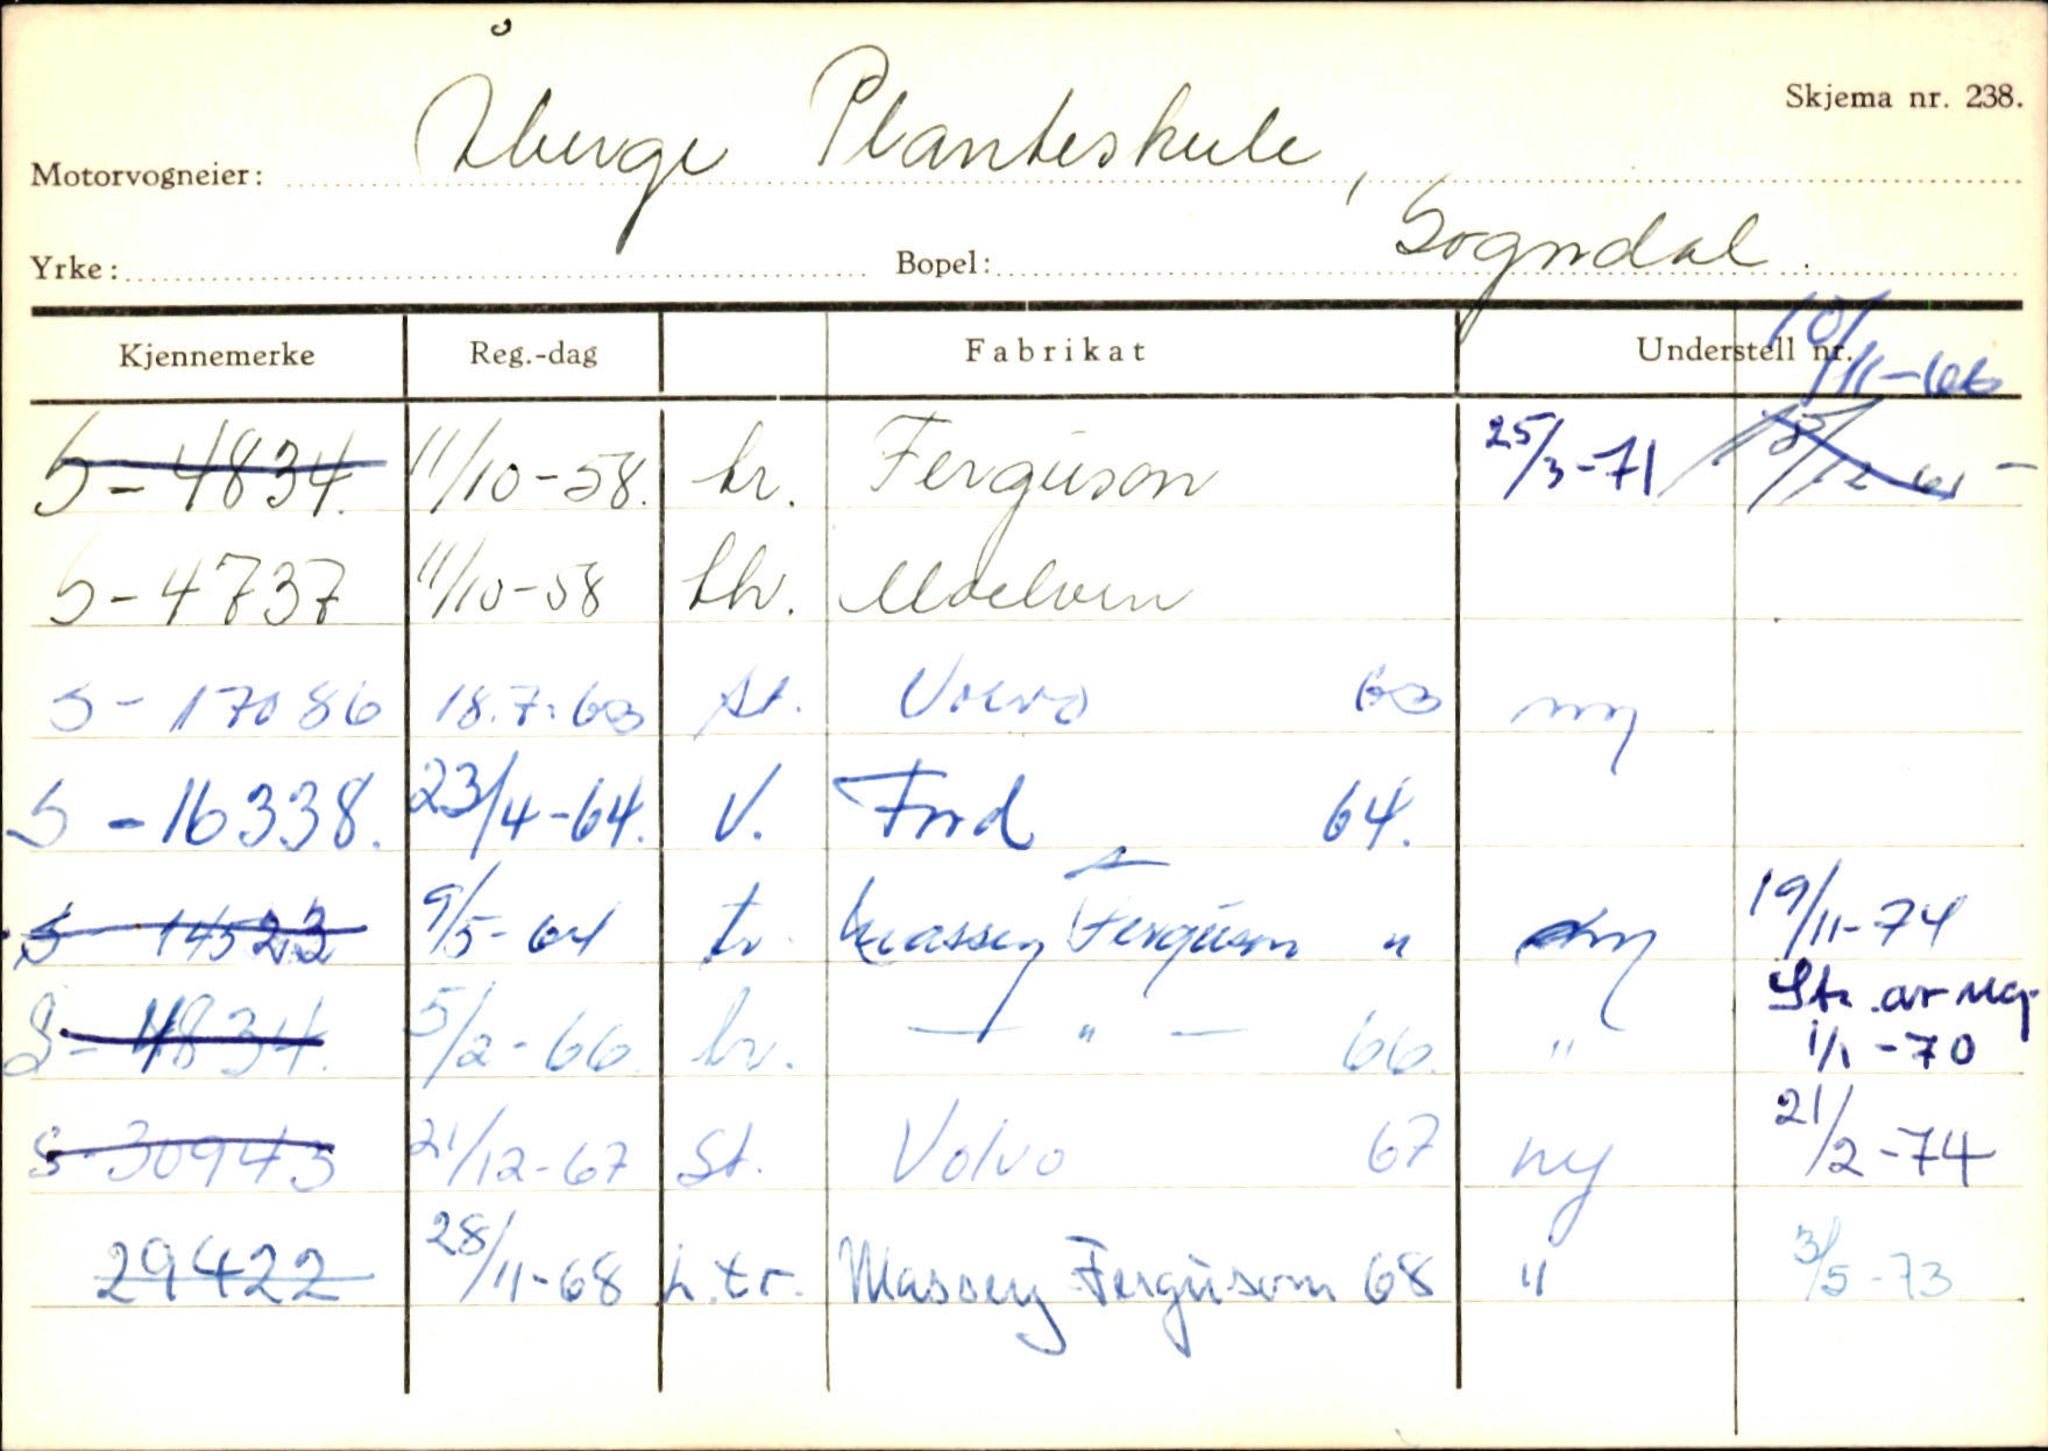 Skjema nr. 238.
Motorvogneier: Åberge Planteskule,
Yrke: Bopel: Sogndal.
Kjennemerke Reg.-dag Fabrikat Understell nr. 10/11-66
S-4834. 11/10-58. tr. Ferguson 25/3-71 18/12 61 -
S-4737 11/10-58 thr. Moelven
S-17086 18.7.63 St. Volvo 63 ny
S-16338. 23/4-64. V. Ford 64.
S 14523 9/5-64 tr. Massey Ferguson " ny 19/11-74
S-4834. 5/2-66. tr. — " — 66. " Str. av reg. 1/1-70
S-30943 21/12-67 St. Volvo 67 ny 21/2-74
29422 28/11-68 h.tr. Massey Ferguson 68 " 3/5-73